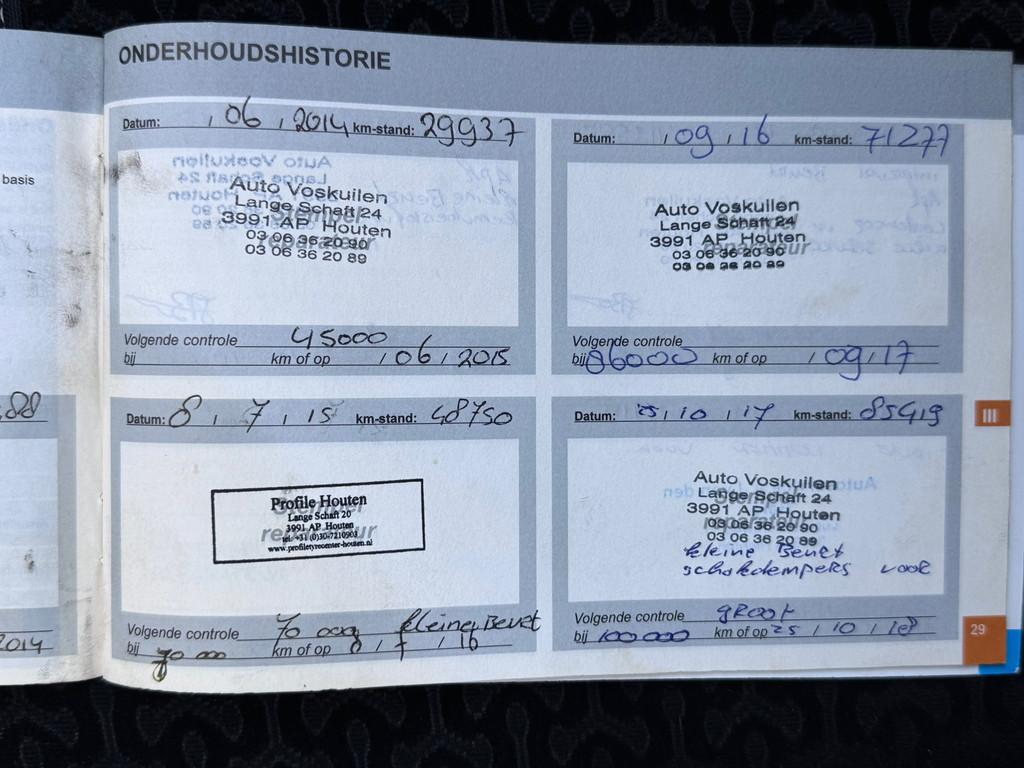 basis
88
2014
ONDERHOUDSHISTORIE
Datum: , 06 , 2014 km-stand: 29937
Auto Voskuilen
Lange Schaft 24
3991 AP Houten
03 06 36 20 90
03 06 36 20 89
Stempel
reparateur
Volgende controle 45000
bij km of op / 06 / 2015
Datum: / 09 / 16 km-stand: 71277
Auto Voskuilen
Lange Schaft 24
3991 AP Houten
03 06 36 20 90
03 06 36 20 89
Stempel
reparateur
Volgende controle
bij 86000 km of op / 09 / 17
Datum: 8 / 7 / 15 km-stand: 48750
Profile Houten
Lange Schaft 20
3991 AP Houten
tel: +31 (0)30-7210903
www.profiletyrecenter-houten.nl
Stempel
reparateur
Volgende controle 70 000 kleine Beurt
bij 70 000 km of op 8 / 7 / 16
Datum: 25 / 10 / 17 km-stand: 85419
Auto Voskuilen
Lange Schaft 24
3991 AP Houten
03 06 36 20 90
03 06 36 20 89
Stempel
kleine Beurt
schokdempers voor
Volgende controle groot
bij 100000 km of op 25 / 10 / 18
III
29